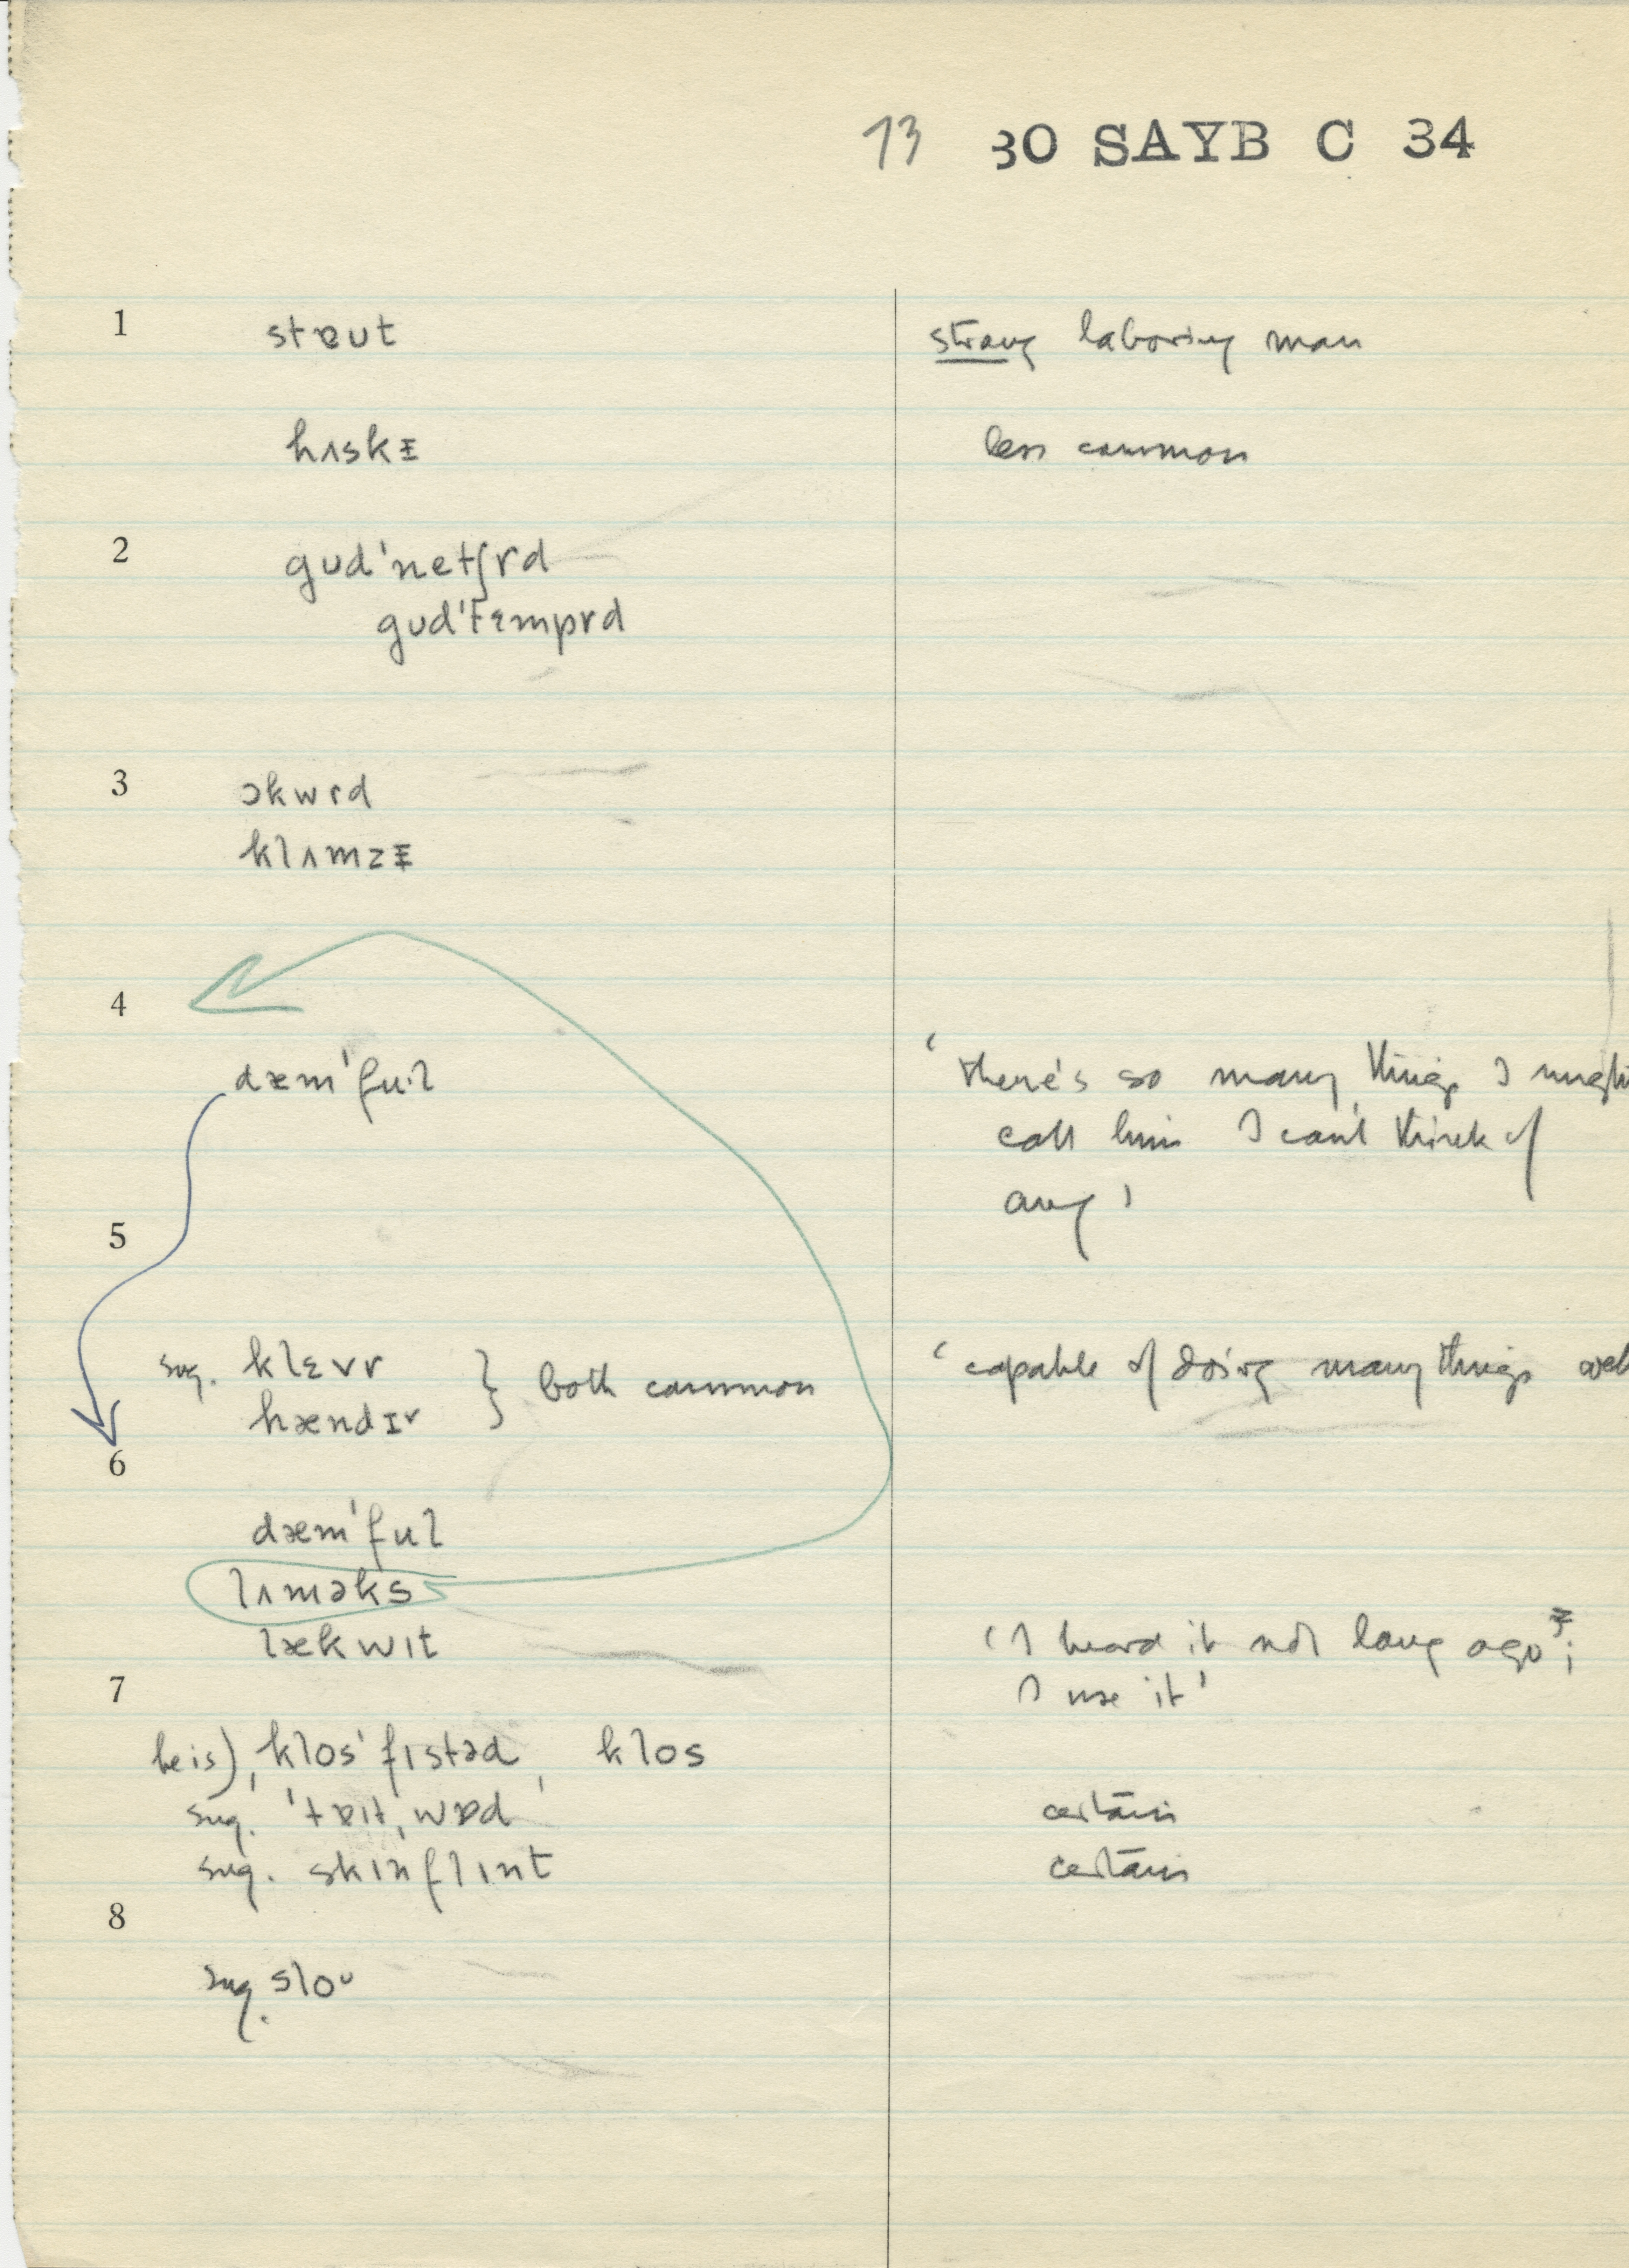 13 30 SAYB C 34
1 stɐut strong laboring man
hʌskɪ less common
2 gud'netʃrd
gud'tɛmprd
3 ɔkwrd
klʌmzɪ
4
dæm'fu·l 'there's so many things I might
call him I can't think of
any'
5
sug. klɛvr } both common 'capable of doing many things well
hændɪr
6
dæm'ful
lʌməks
lækwɪt 'I heard it not long ago';
7 I use it'
he is), klos'fɪstəd, klos
sug. 'tɐɪt,wɒd certain
sug. skɪnflɪnt certain
8
sug. sloᴜ